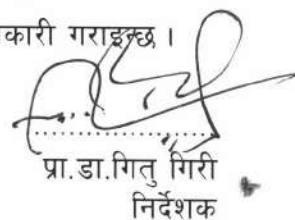 कारी गराइन्छ ।
प्रा.डा.गितु गिरी
निर्देशक